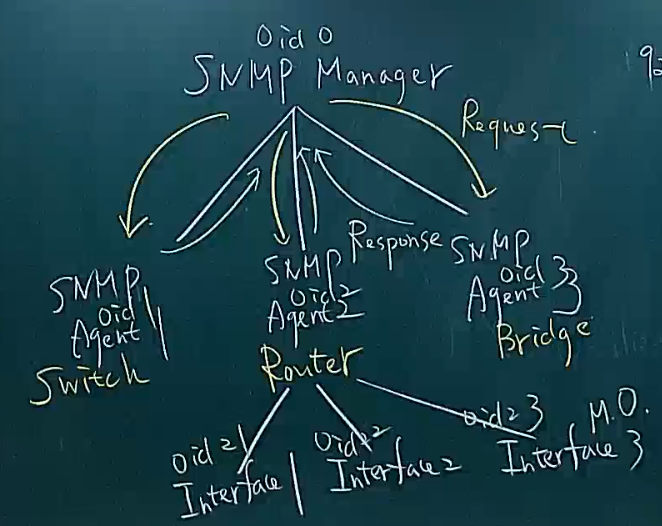 Oid 0
SNMP Manager
Request
Response
SNMP
Oid 1
Agent 1
Switch
SNMP
Oid 2
Agent 2
Router
SNMP
Oid 3
Agent 3
Bridge
Oid 21
Interface 1
Oid 22
Interface 2
Oid 23
Interface 3
M.O.